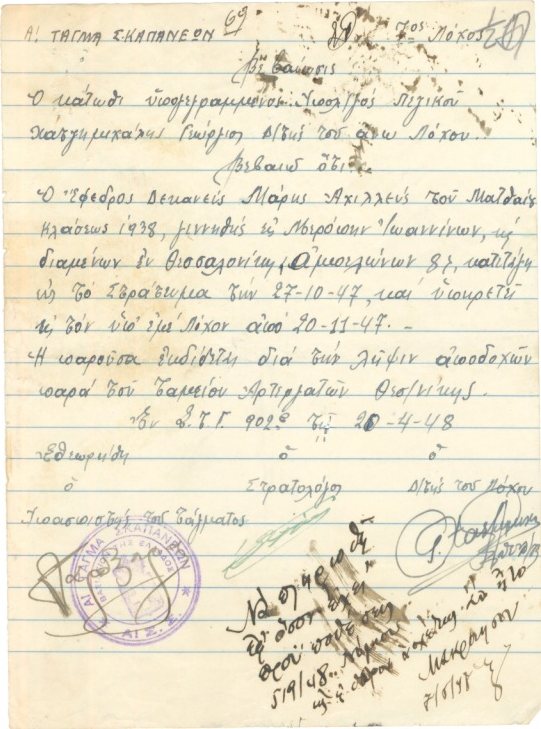 Α! ΤΑΓΜΑ ΣΚΑΠΑΝΕΩΝ 69 7ος Λόχος
Βεβαίωσις
Ο κάτωθι υπογεγραμμένος Υπολ/γός Πεζικού
Χατζημιχάλης Γεώργιος Δ/τής του άνω Λόχου.
Βεβαιώ ότι:
Ο Έφεδρος Δεκανεύς Μάρης Αχιλλεύς του Ματθαίου
κλάσεως 1938, γεννηθείς εις Ιωαννίνων, κ
διαμένων εν Θεσσαλονίκη, Αμπελώνων 82, κατετάγη
εις το Στράτευμα την 27-10-47, και υπηρετεί
εις τον υπ' εμέ Λόχον από 20-11-47. -
Η παρούσα εκδίδεται διά την λήψιν αποδοχών
παρά του Ταμείου Αρτεργατών Θεσ/νίκης.
Εν Σ.Τ.Γ. 902ε τη 20-4-48
Εθεωρήθη ο ο
ο Στρατολόγος Δ/τής του Λόχου
Υπασπιστής του Τάγματος
Α! ΤΑΓΜΑ ΣΚΑΠΑΝΕΩΝ
Να πληρωθή
εφ' όσον έχει
5/9/48
7/5/48